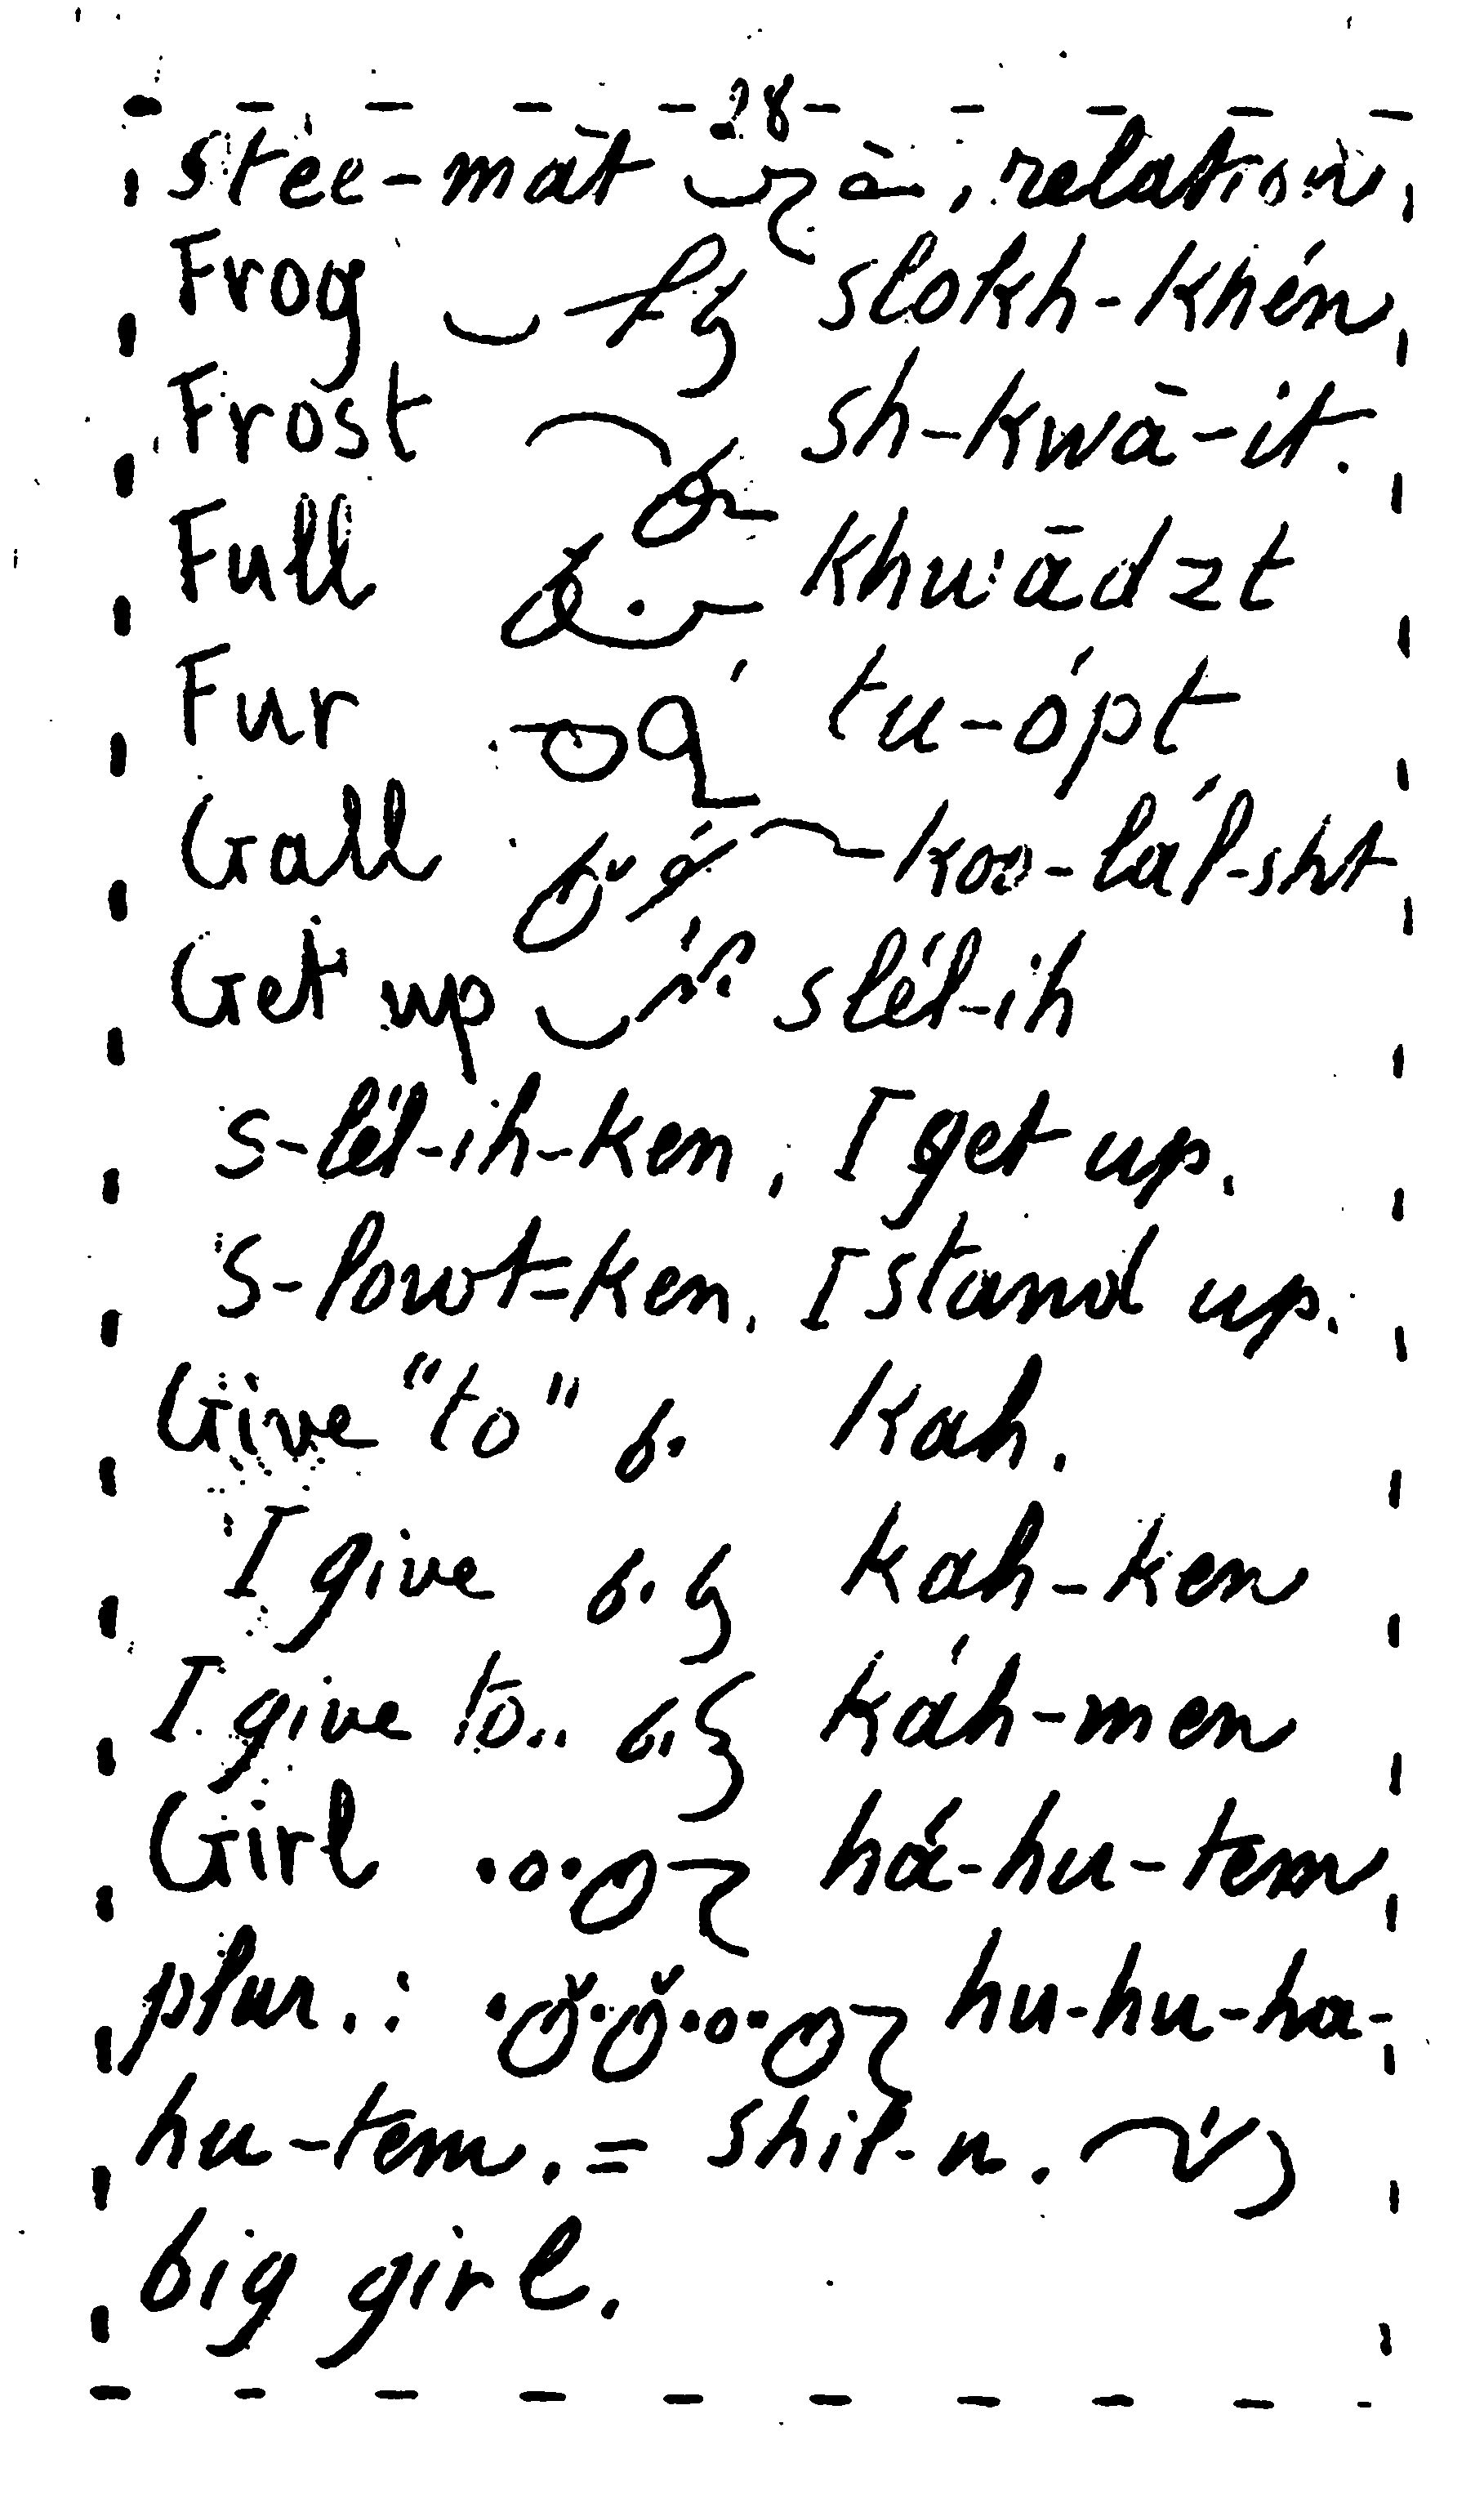 28
stee-mat, relation.
Frog slokh-khén
Frost sh-kwā-it.
Full khuādzt
Fur tu-ópt
Gall koo-lál-sht
Get up slél-ih
s-lél-ih-ken. I get up.
s-lowt-ken. I stand up.
Give "to" kah.
I give kah-ken
I give to.. káh-men
Girl há-hu-tem
plur.: hu-hu-ha-
hu-tem. = shit-n.
big girl.